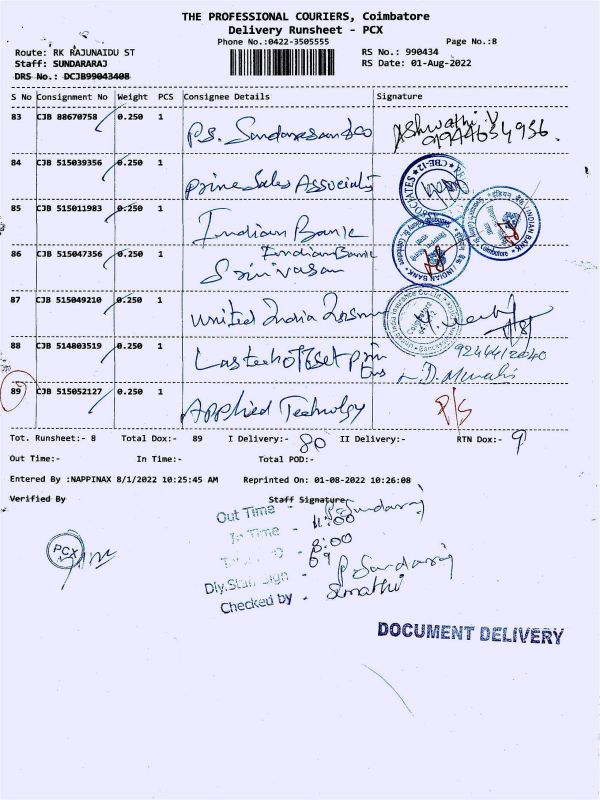 THE PROFESSIONAL COURIERS, Coimbatore
Delivery Runsheet - PCX
Phone No.:0422-3505555 Page No.:8
Route: RK RAJUNAIDU ST RS No.: 990434
Staff: SUNDARARAJ RS Date: 01-Aug-2022
DRS No.: DCJB99043408
S No Consignment No Weight PCS Consignee Details Signature
83 CJB 88670758 0.250 1 P.S. Sundaresan &co Ashwathi.V
84 CJB 515039356 0.250 1 prime Sales Associats
85 CJB 515011983 0.250 1 Indian Bank
86 CJB 515047356 0.250 1 Indian Bank
Srinivasan
87 CJB 515049210 0.250 1 United India
88 CJB 514803519 0.250 1
89 CJB 515052127 0.250 1 Applied Technolgy P/S
Tot. Runsheet:- 8 Total Dox:- 89 I Delivery:- 80 II Delivery:- RTN Dox:- 9
Out Time:- In Time:- Total POD:-
Entered By :NAPPINAX 8/1/2022 10:25:45 AM Reprinted On: 01-08-2022 10:26:08
Verified By Staff Signature
Out Time - 11:00
In Time - 8:00
Dly.Staff Sign - P.Sundaraj
Checked by -
PCX
DOCUMENT DELIVERY